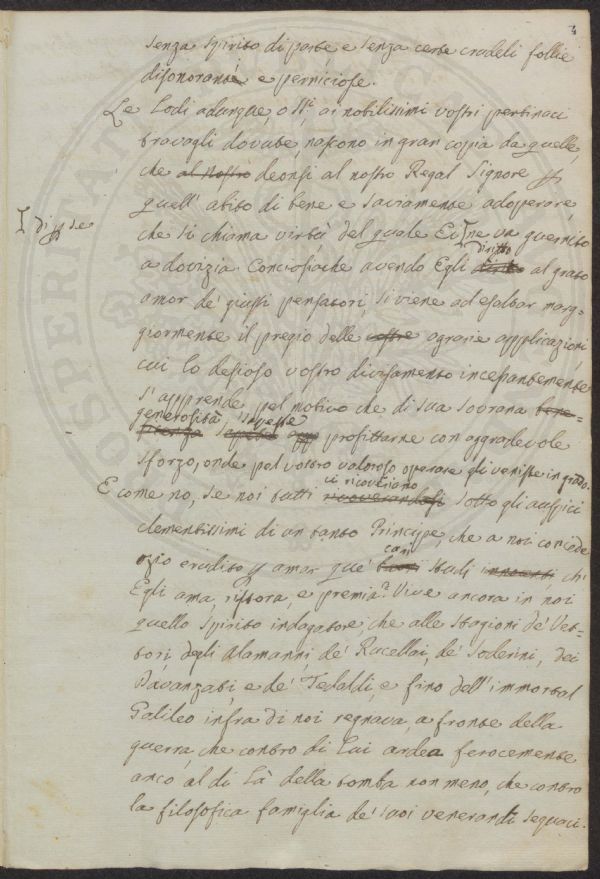 senza spirito di parte e senza certe crudeli follie
disonorante e perniciose.
Le Lodi adunque, o SS.i ai nobilissimi vostri pertinaci
travagli dovute, nascono in gran copia da quelle,
che al nostro deonsi al nostro Regal Signore per
quell' abito di bene e saviamente adoperare,
che si chiama virtù del quale Ei ne va guernito
di per se
a dovizia. Conciosiache avendo Egli diritto al grato
amor de' giusti pensatori, si viene ad esaltar mag-
giormente il pregio delle vostre agrarie applicazioni,
cui lo desioso vostro divisamento incessantemente
s' apprende pel motivo che di sua sovrana bene-
generosità sapeste
ficenza profittarne con aggradevole
sforzo, onde pel vostro valoroso operare gli veniste in grado.
E come no, se noi tutti ci ricoveriamo sotto gli auspici
clementissimi di un tanto Principe, che a noi concede
ozio erudito per amor que' cari studi ch'
Egli ama, ristora, e premia? Vive ancora in noi
quello spirito indagatore, che alle stagioni de' Vet-
tori, degli Alamanni, de' Rucellai, de' Soderini, dei
Davanzati, e de' Tedaldi, e fino dell' immortal
Galileo infra di noi regnava, a fronte della
guerra, che contro di Lui ardea ferocemente
anco al di là della tomba non meno, che contro
la filosofica famiglia de' suoi venerandi seguaci.